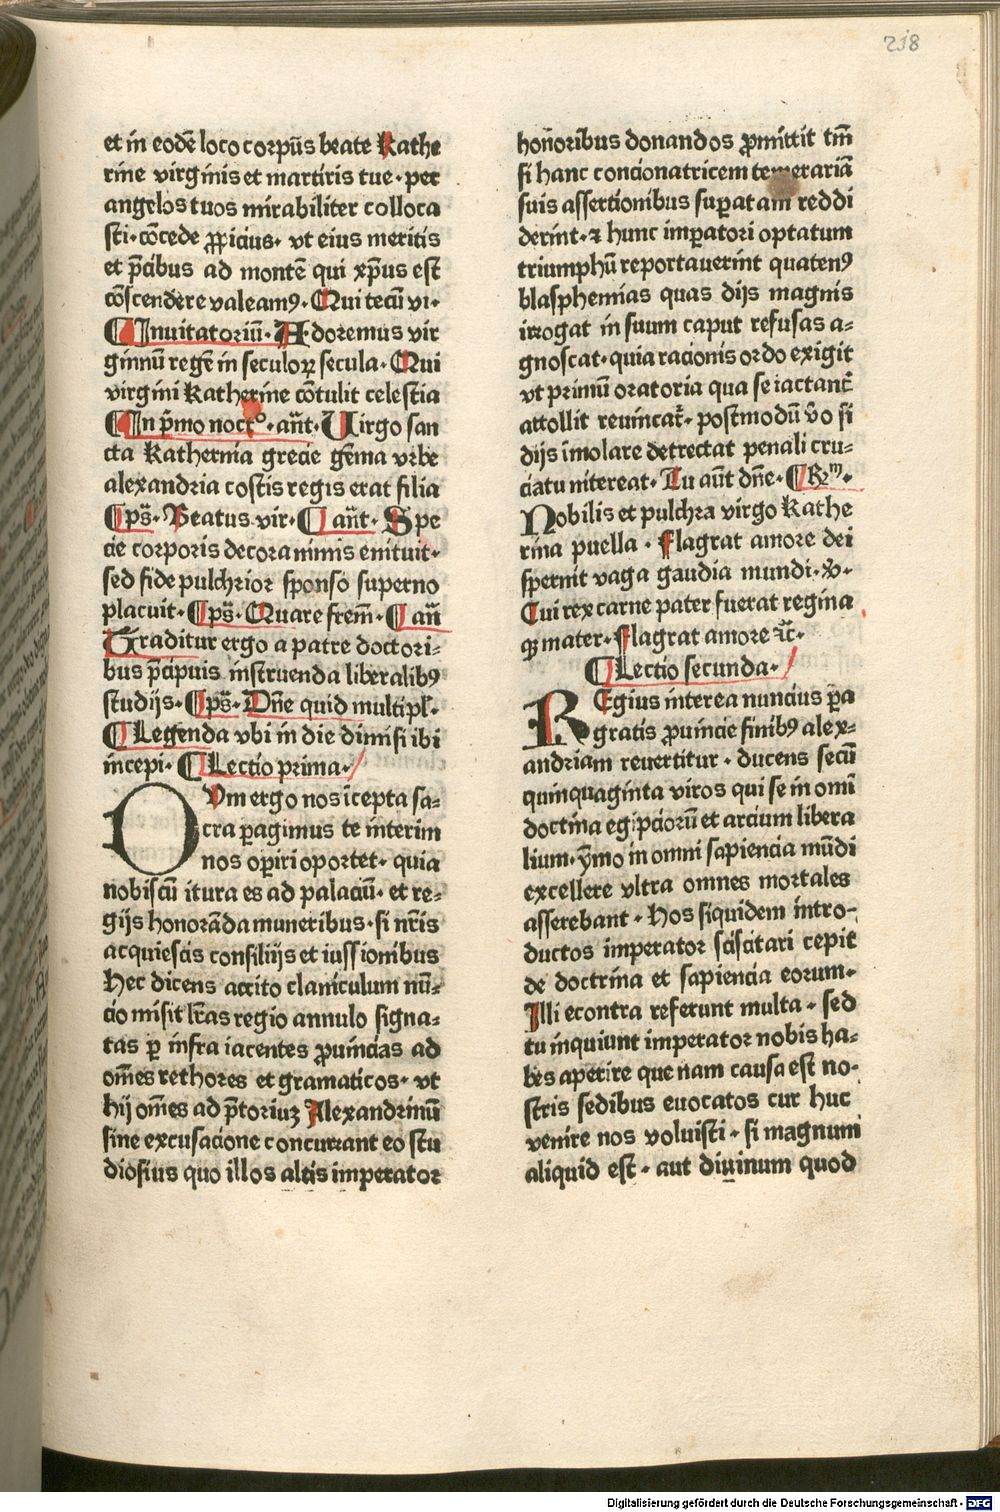 218
et in eodē loco corpūs beate Kathe
rine virginis et martiris tue· per
angelos tuos mirabiliter colloca
sti· cōcede ꝓpicius· vt eius meritis
et p̄cibus ad montē qui xp̄us est
cōscendere valeamꝰ· Qui tecū vi·
¶Inuitatoriū· Adoremus vir
ginnū regē in seculoꝝ secula· Qui
virgini Katherine cōtulit celestia
¶In p̄mo noctº· añt· Uirgo san
cta Kathernia grecie gēma vrbe
alexandria costis regis erat filia
¶ps̄· Beatus vir· ¶añt· Spe
cie corporis decora nimis enituit·
sed fide pulchrior sponso superno
placuit· ¶ps̄· Quare frem̄· ¶añ
Traditur ergo a patre doctori⸗
bus p̄cipuis instruenda liberalibꝰ
studijs· ¶ps̄· Dn̄e quid multipl̄·
¶Legenda vbi in die dimisi ibi
incepi· ¶Lectio prima·
OVm ergo nos īcepta sa⸗
cra ꝑagimus te interim
nos oꝑiri oportet· quia
nobiscū itura es ad palaciū· et re⸗
gijs honorāda muneribus· si nr̄is
acquiescis consilijs et iussionibus
Hec dicens accito clanīculum nū⸗
cio misit lr̄as regio annulo signa⸗
tas ꝑ infra iacentes ꝓuincias ad
om̄es rethores et gramaticos· vt
hij om̄es ad p̄toriuꝫ Alexandrinū
sine excusacione concurrant eo stu
diosius quo illos altis imperator
hon̄oribus donandos ꝓmittit tm̄
si hanc concionatricem temerariā
suis assertionibus suꝑatam reddi
derint· ⁊ hunc imꝑatori optatum
triumphū reportauerint quatenꝰ
blasphemias quas dijs magnis
irrogat in suum caput refusas a⸗
gnoscat· quia racionis ordo exigit
vt primū oratoria qua se iactant̄
attollit reuincat̄· postmodū v̄o si
dijs īmolare detrectat penali cru⸗
ciatu nitereat· Tu aūt dn̄e· ¶Rm·
Nobilis et pulchra virgo Kathe
rina puella · Flagrat amore dei
spernit vaga gaudia mundi· ℣·
Cui rex carne pater fuerat regina
qꝫ mater· Flagrat amore ⁊c̄·
¶Lectio secunda·
REgius interea nuncius ꝑa
gratis ꝓuincie finibꝰ alex⸗
andriam reuertitur · ducens secū
quinquaginta viros qui se in omī
doctrina egipciorū et arcium libera
lium· ymo in omni sapiencia mūdi
excellere vltra omnes mortales
asserebant · Hos siquidem intro⸗
ductos imperator sciscitari cepit
de doctrina et sapiencia eorum·
Illi econtra referunt multa · sed
tu inquiunt imperator nobis ha⸗
bes aperire que nam causa est no⸗
stris sedibus euocatos cur huc
venire nos voluisti · si magnum
aliquid est · aut diuinum quod
Digitalisierung gefördert durch die Deutsche Forschungsgemeinschaft - DFG